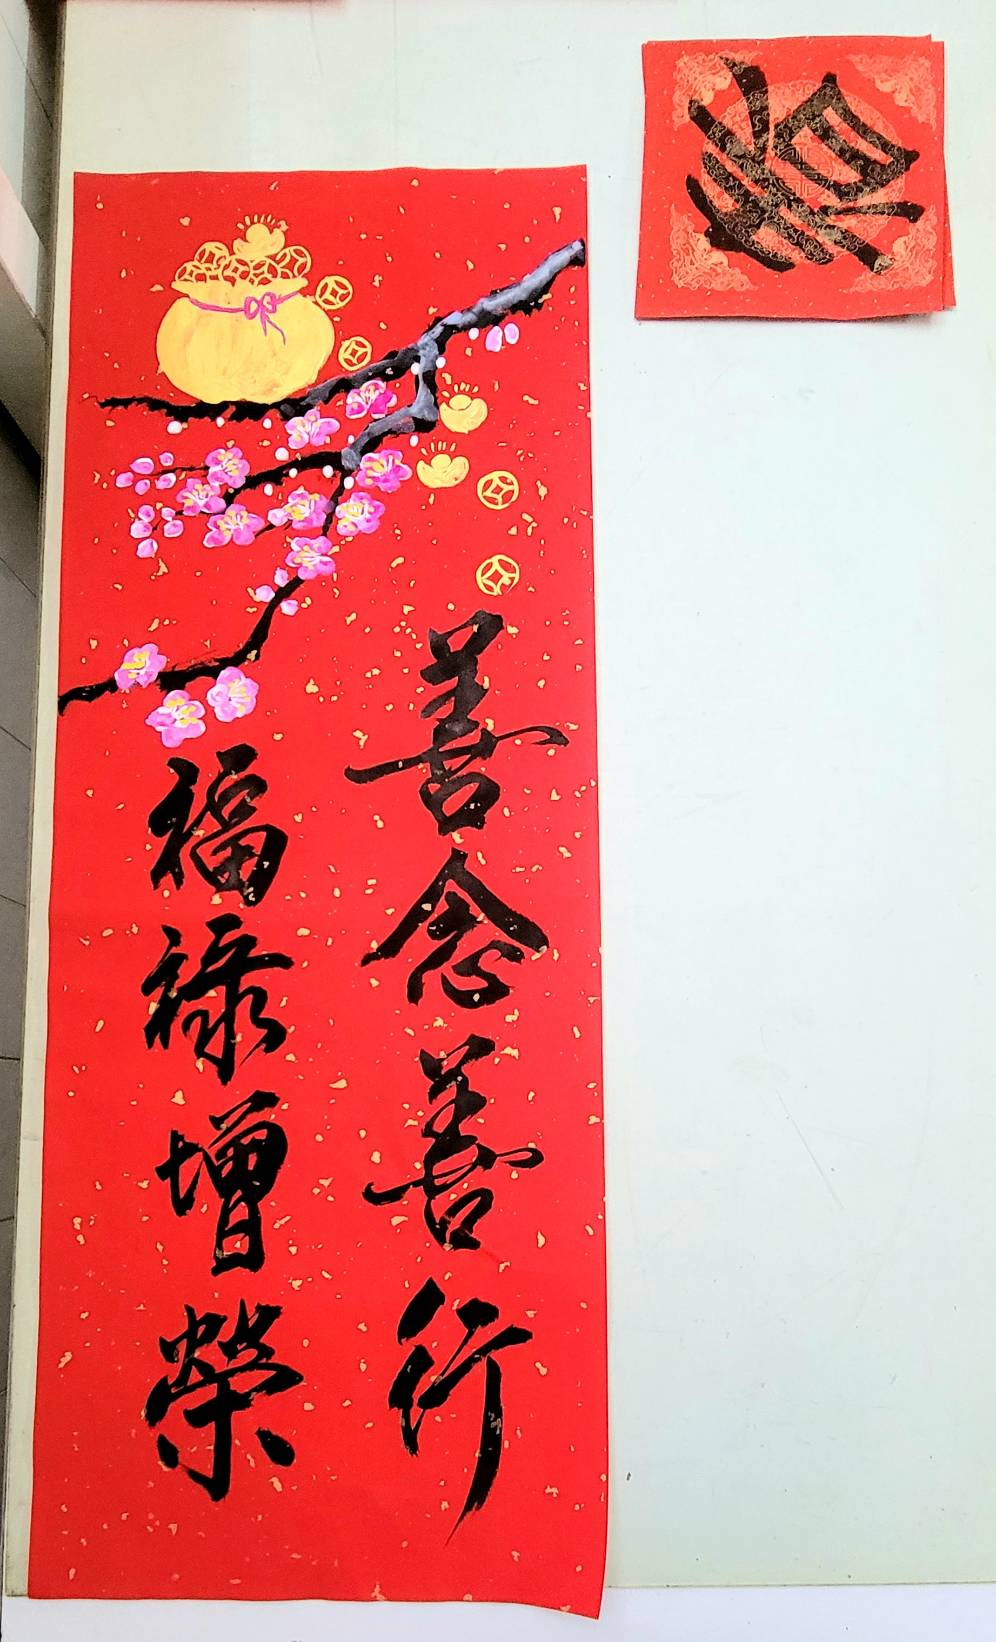 善念善行
福祿增榮
春